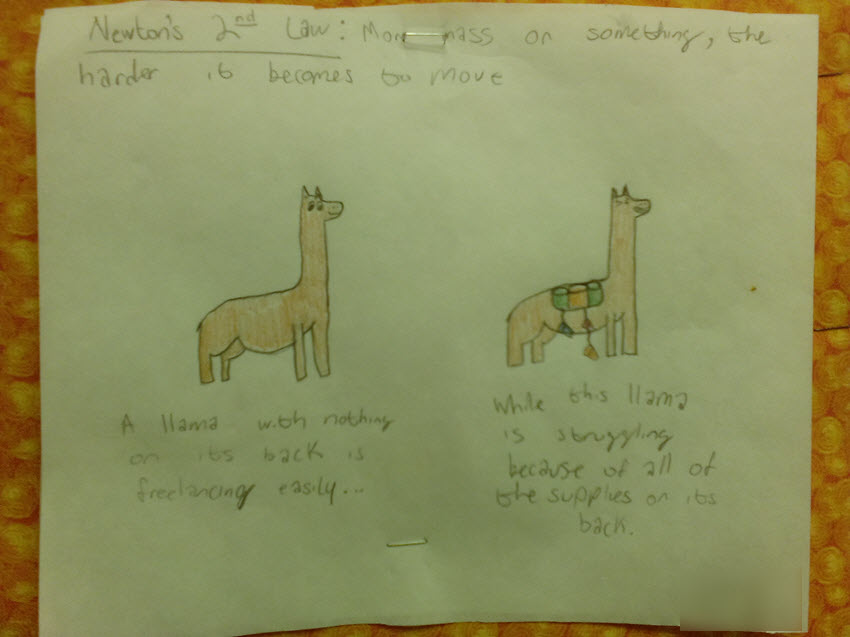 Newton's 2nd Law: More mass on something, the
harder it becomes to move
A llama with nothing
on its back is
freelancing easily...
While this llama
is struggling
because of all of
the supplies on its
back.